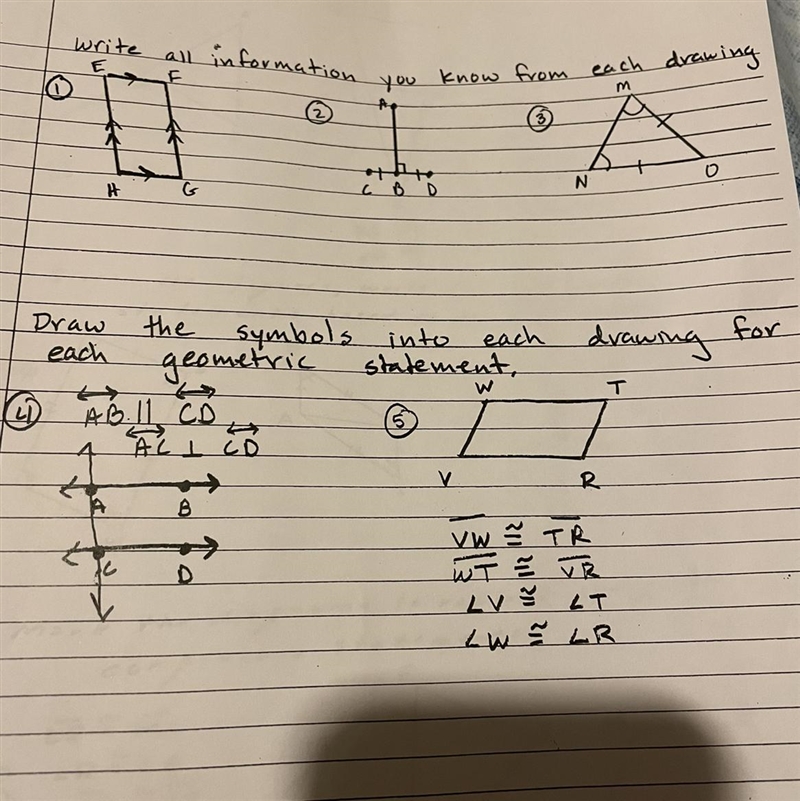 Write all information you know from each drawing
① E F H G
② A C B D
③ M N O
Draw the symbols into each drawing for
each geometric statement.
④ AB || CD
AC ⊥ CD
A B
C D
⑤ W T
V R
VW ≅ TR
WT ≅ VR
∠V ≅ ∠T
∠W ≅ ∠R